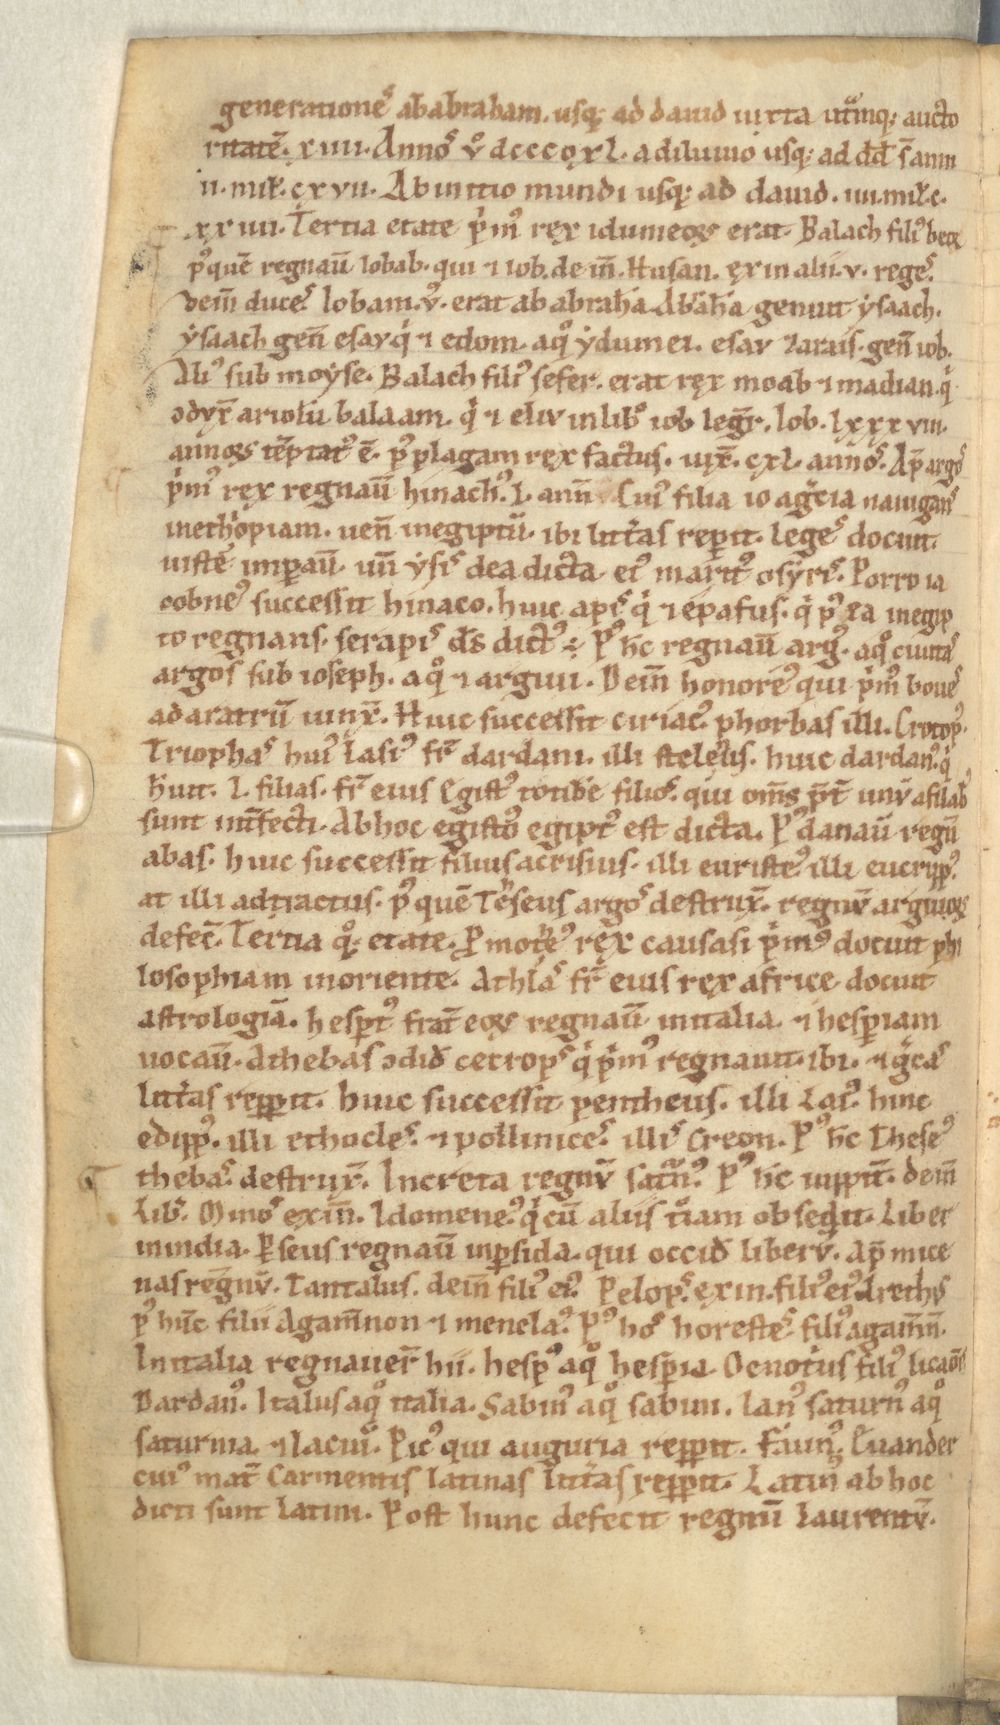 generatione᷒ ababraham. usq; ad dauid iuxta utͣmq; aucto
ritatē. xiiii. Anno᷒ v̊ dccccxl. adiluuio usq; ad dd̄ s̄ anni
ii. mil̄. cxvii. Abinitio mundi usq; ad dauid. iiii. mil̄. c.
xxiiii. Tertia etate p̍m᷒ rex idumeoꝝ erat. Balach fili᷒ beoꝝ
p᷒quē regnaū iobab. qui ⁊ iob. deīn. Husan. exin alii. v. rege᷒.
deīn duce᷒. Iobam. v̊. erat ab abrahā. Abrahā genuit ẏsaach.
ẏsaach gen̄ esavq̍ ⁊ edom. aqͦ ẏdumei. esav zarais. gen̄ iob.
Ali᷒ sub moẏse. Balach fili᷒ sefer. erat rex moab ⁊ madian. q̍
ↄdvx̄ ariolū balaam. q̍ ⁊ eliv inlib᷒ iob leḡr. Iob. lxxxviii.
annoꝝ tēptat᷒ ē. p᷒ plagam rex factus. uix̄. cxl. anno᷒. Ap̄ argo᷒
p̍m᷒ rex regnaū hinach᷒. l. ann̄ Cui᷒ filia io ag̍cia nauigan᷒
inethiopiam. uen̄ inegiptū. ibi litt̄as rep̄it. lege᷒ docuit.
uiste imp̄aū. un̄ ẏsi᷒ dea dicta. ei᷒ marit᷒ osẏri᷒. Porro ia
cobne᷒ successit hinaco. huic api᷒ q̍ ⁊ epafus. q̍ p᷒ ea inegip
to regnans. serapi᷒ d̄s dict᷒ ÷ P᷒ h̄c regnaū arg᷒. aqͦ ciuita᷒
argos sub ioseph. aqͦ ⁊ argiui. Deīn honore᷒ qui p̍m᷒ boue᷒
adaratrū iunx̄. Huic successit ciriac᷒. phorbas illi. Crotop᷒.
Triopha᷒ hui᷒ Iasi᷒ fr̄ dardani. illi stelelus. huic dardan᷒ q̍
h̄uit. l. filias. fr̄ eius Egist᷒ totidē filio᷒. qui om̄s p̄t unv̄ afilab᷒
sunt int̄fecti. Abhoc egisto egipt᷒ est dicta. P᷒ danaū regn̄
abas. huic successit filius acrisius. illi eurist᷒. illi eucripp᷒.
at illi adtractus. p᷒ quē Teseus argo᷒ destrux̄. regnv̄ argiuoꝝ
defec̄. Tertia qͦ; etate. Promothe᷒ rex causasi p̍m᷒ docuit phi
losophiam inoriente. Athla᷒ fr̄ eius rex africe docuit
astrologiā. hesper᷒ frat̄ eoꝝ regnaū initalia. ⁊ hesperiam
uocaū. Athebas ↄdid̄ cecrop᷒ q̍ p̍m᷒ regnauit. ibi. ⁊ g̍ca᷒
litt̄as repperit. huic successit pentheus. illi Lai᷒. hinc
edipp᷒. illi ethocle᷒. ⁊ pollinice᷒. illi᷒ Creon. P᷒ h̄c These᷒
theba᷒. destrux̄. Increta regnv̄ saturn᷒. P᷒ h̄c iuppit̄. deīn
Lib̄. Mino᷒ exīn. Idomene᷒. q̍ cū aliis troiam obsedit. Liber
inindia. Perseus regnaū inpersida. qui occid̄ liberv̄. Ap̄ mice
nas regnv̄. Tantalus. deīn fili᷒ ei᷒. Pelop᷒. exin. fili᷒ ei᷒ Arethi᷒
p᷒ hūc filii Agam̄non ⁊ menela᷒. P᷒ ho᷒ horeste᷒ fili᷒ agam̄n̄.
Initalia regnauer̄ hii. hesp᷒ aqͦ hesperia. Oenotrius fili᷒ licaon᷒
Dardan᷒. Italus aqͦ italia. Sabin᷒ aqͦ sabini. Ian᷒ saturn᷒ aqͦ
saturnia. ⁊ laciū. Pic᷒ qui auguria repperit. Faun᷒. Euander
cui᷒ mat̄ Carmentis latinas litt̄as repperit. Latin᷒ ab hoc
dicti sunt Latini. Post hunc defecit regnū Laurentv̄.